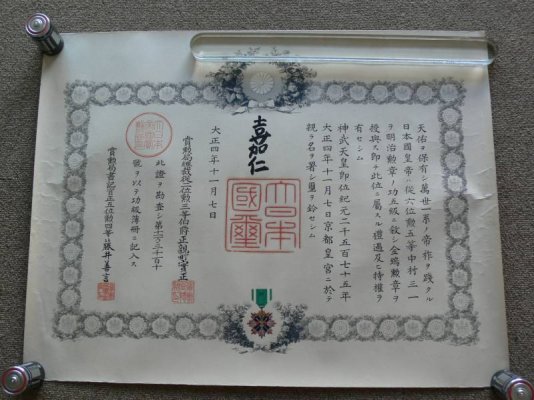 天佑ヲ保有シ萬世一系ノ帝祚ヲ踐タル
日本國皇帝ハ從六位勲五等中村三一
ヲ明治勲章ノ功五級ニ敍シ金鵄勲章ヲ
授與ス即チ此位ニ屬スル禮遇及ヒ特權ヲ
有セシム
神武天皇即位紀元二千五百七十五年
大正四年十一月七日京都皇宮ニ於テ
親ラ名ヲ署シ璽ヲ鈐セシム
嘉仁
大日本
國璽
大正四年十一月七日
賞勲局總裁從二位勲三等伯爵正親町實正
此證ヲ勘査シ第
號ヲ以テ功級簿册ニ記入ス
賞勲局書記官正五位勲四等藤井善言